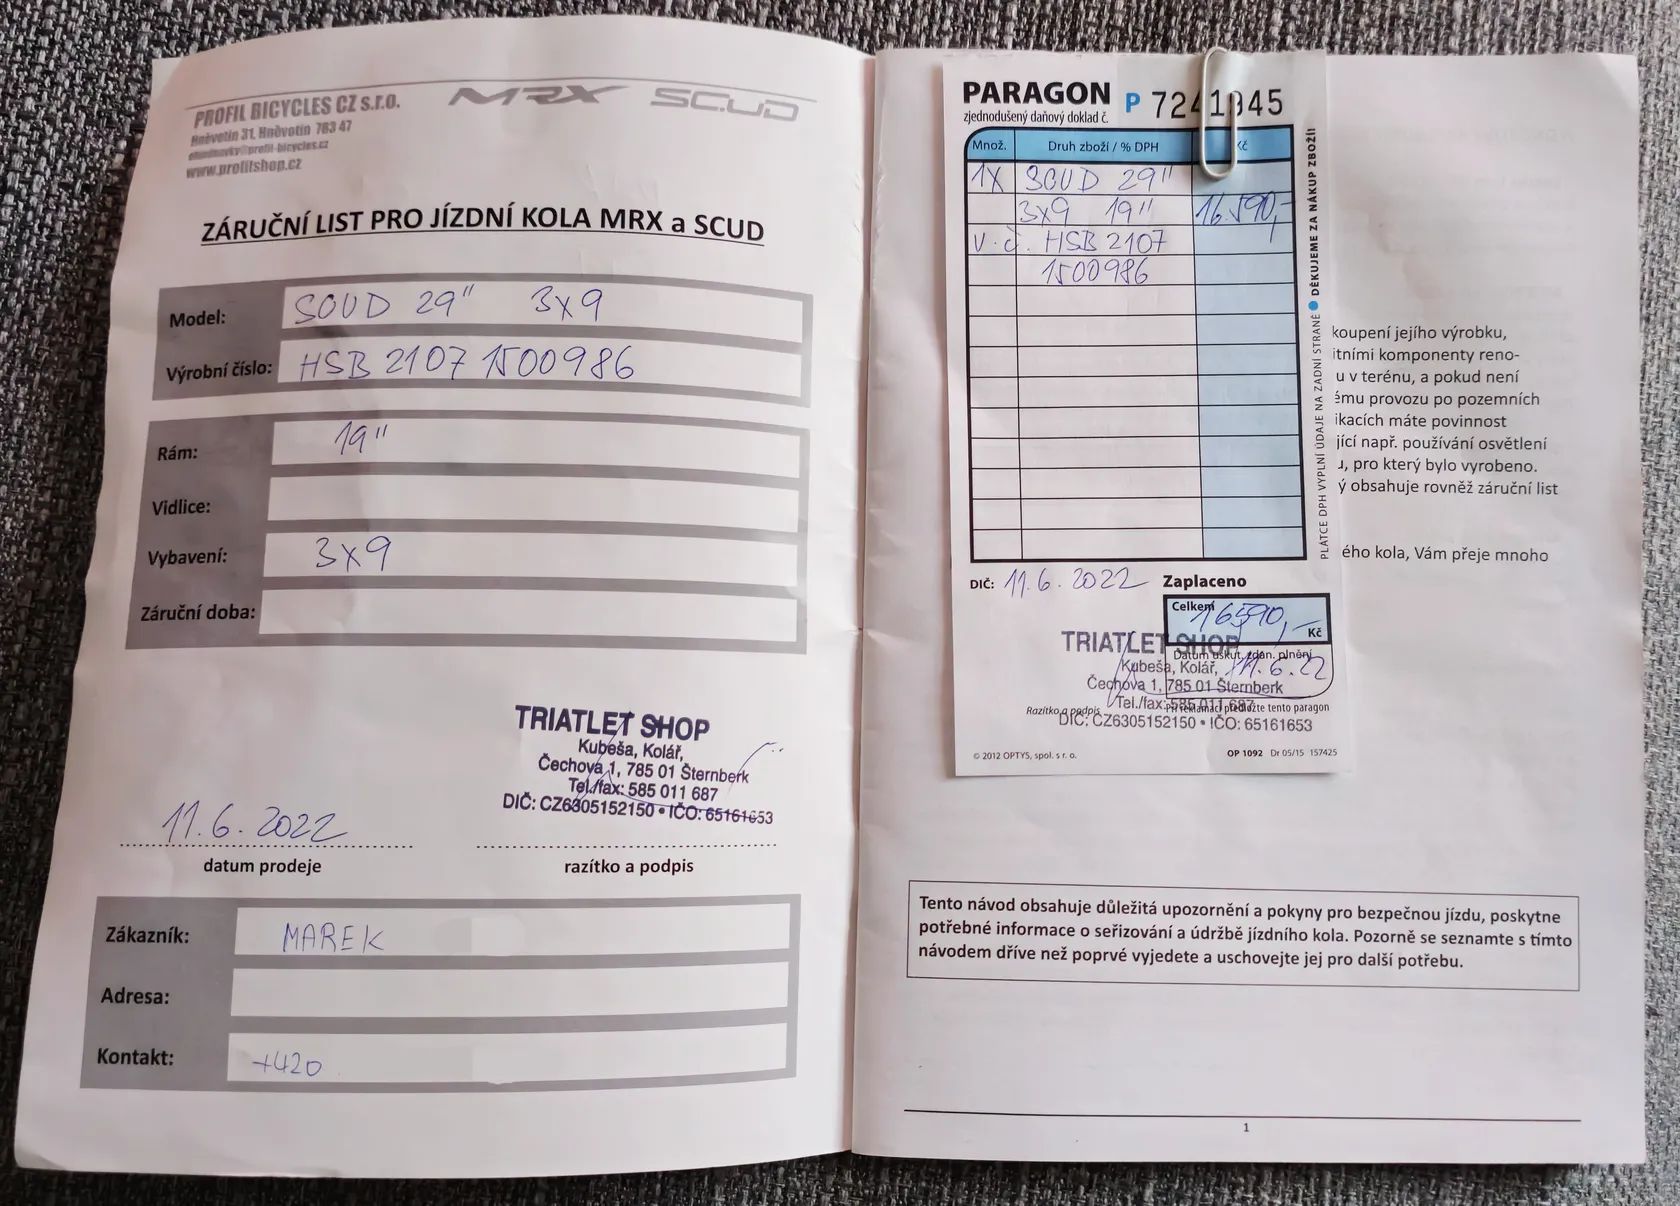 PROFIL BICYCLES CZ s.r.o.
Hněvotín 31, Hněvotín 783 47
www.profilshop.cz
MRX SCUD
ZÁRUČNÍ LIST PRO JÍZDNÍ KOLA MRX a SCUD
Model: SCUD 29" 3x9
Výrobní číslo: HSB 2107 1500986
Rám: 19"
Vidlice:
Vybavení: 3x9
Záruční doba:
TRIATLET SHOP
Kubeša, Kolář,
Čechova 1, 785 01 Šternberk
Tel./fax: 585 011 687
DIČ: CZ6305152150 • IČO: 65161653
11.6.2022
datum prodeje
razítko a podpis
Zákazník: MAREK
Adresa:
Kontakt: +420
PARAGON P 7241945
zjednodušený daňový doklad č.
Množ. Druh zboží / % DPH Kč
1X SCUD 29"
3x9 19" 16.590,-
v.č. HSB 2107
1500986
PLÁTCE DPH VYPLNÍ ÚDAJE NA ZADNÍ STRANĚ ● DĚKUJEME ZA NÁKUP ZBOŽÍ!
DIČ: 11.6.2022 Zaplaceno
Celkem 16590,- Kč
Datum uskut. zdan. plnění
11.6.22
TRIATLET SHOP
Kubeša, Kolář,
Čechova 1, 785 01 Šternberk
Tel./fax: 585 011 687
Razítko a podpis
Při reklamaci předložte tento paragon
DIČ: CZ6305152150 • IČO: 65161653
© 2012 OPTYS, spol. s r. o. OP 1092 Dr 05/15 157425
koupení jejího výrobku,
itními komponenty reno-
u v terénu, a pokud není
ému provozu po pozemních
ikacích máte povinnost
jící např. používání osvětlení
u, pro který bylo vyrobeno.
ý obsahuje rovněž záruční list
ého kola, Vám přeje mnoho
Tento návod obsahuje důležitá upozornění a pokyny pro bezpečnou jízdu, poskytne
potřebné informace o seřizování a údržbě jízdního kola. Pozorně se seznamte s tímto
návodem dříve než poprvé vyjedete a uschovejte jej pro další potřebu.
1